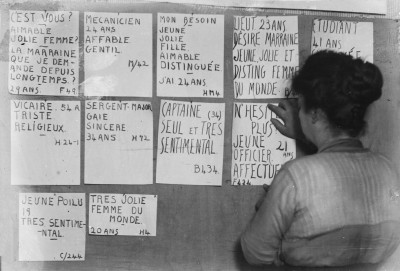 C'EST VOUS?
AIMABLE
JOLIE FEMME?
LA MARRAINE
QUE JE DEM-
ANDE DEPUIS
LONGTEMPS?
29 ANS. F 49
MECANICIEN
24 ANS
AFFABLE
GENTIL
M/42
MON BESOIN
JEUNE
JOLIE
FILLE
AIMABLE
DISTINGUÉE.
J'AI 24 ANS
HM4
JEUT 23 ANS
DÉSIRE MARRAINE
JEUNE JOLIE ET
DISTING FEMME
DU MONDE.
ETUDIANT
41 ANS
VICAIRE. 54 A
TRISTE
RELIGIEUX.
H 24-1
SERGENT-MAJOR
GAIE
SINCERE
34 ANS. H 92
CAPTAINE (34)
SEUL ET TRES
SENTIMENTAL
B 434.
N'HESI
PLUS
JEUNE 21
OFFICIER. ANS
AFFECTUE
F 434
JEUNE POILU
19
TRES SENTIME-
NTAL
C/244
TRES JOLIE
FEMME DU
MONDE.
20 ANS H4